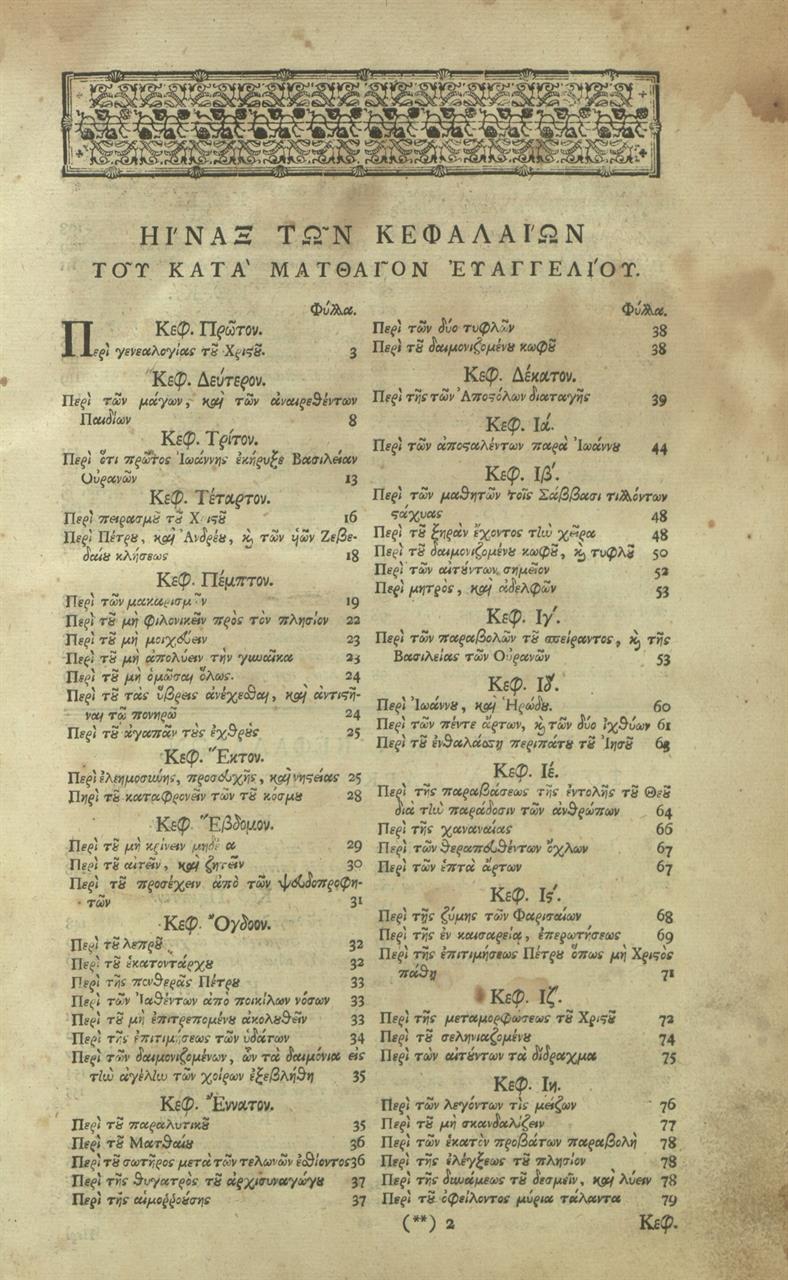 ΗΙ´ΝΑΞ ΤΩ῀Ν ΚΕΦΑΛΑΙ´ΩΝ
ΤΟΥ῀ ΚΑΤΑ` ΜΑΤΘΑΙ῀ΟΝ ἘΥΑΓΓΕΛΙ´ΟΥ.
Φύλλα.
Κεφ. Πρῶτον.
Περὶ γενεαλογίας τȣ͂ Χριςȣ͂. 3
Κεφ. Δεύτερον.
Περὶ τῶν μάγων, καὶ τῶν ἀναιρεθέντων
Παιδίων 8
Κεφ. Τρίτον.
Περὶ ὅτι πρῶτος Ἰωάννης ἐκήρυξε Βασιλείαν
Οὐρανῶν 13
Κεφ. Τέταρτον.
Περὶ πειρασμȣ͂ τȣ͂ Χριςȣ͂ 16
Περὶ Πέτρȣ, καὶ Ἀνδρέȣ, κ̀ τῶν ὑῶν Ζεβε-
δαίȣ κλήσεως 18
Κεφ. Πέμπτον.
Περὶ τῶν μακαρισμῶν 19
Περὶ τȣ͂ μὴ φιλονικεῖν πρὸς τὸν πλησίον 22
Περὶ τȣ͂ μὴ μοιχεύειν 23
Περὶ τȣ͂ μὴ ἀπολύειν τὴν γυναῖκα 23
Περὶ τȣ͂ μὴ ὀμῶσαι ὅλως. 24
Περὶ τȣ͂ τὰς ὕβρεις ἀνέχεσθαι, καὶ ἀντιςῆ-
ναι τῶ πονηρῶ 24
Περὶ τȣ͂ ἀγαπᾶν τȣ̀ς ἐχθρȣ̀ς 25
Κεφ. Ἕκτον.
Περὶ ἐλεημοσύνης, προσευχῆς, καὶ νηςείας 25
Πηρὶ τȣ͂ καταφρονεῖν τῶν τȣ͂ κόσμȣ 28
Κεφ. Ἕβδομον.
Περὶ τȣ͂ μὴ κρίνειν 29
Περὶ τȣ͂ αἰτεῖν, καὶ ζητεῖν 30
Περὶ τȣ͂ προσέχειν ἀπὸ τῶν ψευδοπροφη-
τῶν 31
Κεφ. Ὄγδοον.
Περὶ τȣ͂ λεπρȣ͂ 32
Περὶ τȣ͂ ἑκατοντάρχȣ 32
Περὶ τῆς πενθερᾶς Πέτρȣ 33
Περὶ τῶν Ἰαθέντων ἀπὸ ποικίλων νόσων 33
Περὶ τȣ͂ μὴ ἐπιτρεπομένȣ ἀκολȣθεῖν 33
Περὶ τῆς ἐπιτιμήσεως τῶν ὑδάτων 34
Περὶ τῶν δαιμονιζομένων, ὧν τὰ δαιμόνια εἰς
τὴν ἀγέλην τῶν χοίρων ἐξεβλήθη 35
Κεφ. Ἔννατον.
Περὶ τȣ͂ παραλυτικȣ͂ 35
Περὶ τȣ͂ Ματθαίȣ 36
Περὶ τȣ͂ σωτῆρος μετὰ τῶν τελωνῶν ἐσθίοντος 36
Περὶ τῆς θυγατρὸς τȣ͂ ἀρχισυναγώγȣ 37
Περὶ τῆς αἱμοῤῥούσης 37
Φύλλα.
Περὶ τῶν δύο τυφλῶν 38
Περὶ τȣ͂ δαιμονιζομένȣ κωφȣ͂ 38
Κεφ. Δέκατον.
Περὶ τῆς τῶν Ἀποςόλων διαταγῆς 39
Κεφ. Ιά.
Περὶ τῶν ἀποςαλέντων παρὰ Ἰωάννȣ 44
Κεφ. Ιβ´.
Περὶ τῶν μαθητῶν τοῖς Σάββασι τιλλόντων
ςάχυας 48
Περὶ τȣ͂ ξηρὰν ἔχοντος τὴν χεῖρα 48
Περὶ τȣ͂ δαιμονιζομένȣ κωφȣ͂, κ̀ τυφλȣ͂ 50
Περὶ τῶν αἰτȣ́ντων σημεῖον 52
Περὶ μητρὸς, καὶ ἀδελφῶν 53
Κεφ. Ιγ´.
Περὶ τῶν παραβολῶν τȣ͂ σπείραντος, κ̀ τῆς
Βασιλείας τῶν Οὐρανῶν 53
Κεφ. Ιδ´.
Περὶ Ἰωάννȣ, καὶ Ἡρώδȣ. 60
Περὶ τῶν πέντε ἄρτων, κ̀ τῶν δύο ἰχθύων 61
Περὶ τȣ͂ ἐνθαλάσσῃ περιπάτȣ τȣ͂ Ἰησȣ͂ 63
Κεφ. Ιέ.
Περὶ τῆς παραβάσεως τῆς ἐντολῆς τȣ͂ Θεȣ͂
διὰ τὴν παράδοσιν τῶν ἀνθρώπων 64
Περὶ τῆς χαναναίας 66
Περὶ τῶν θεραπευθέντων ὄχλων 67
Περὶ τῶν ἑπτὰ ἄρτων 67
Κεφ. Ις´.
Περὶ τῆς ζύμης τῶν Φαρισαίων 68
Περὶ τῆς ἐν καισαρείᾳ, ἐπερωτήσεως 69
Περὶ τῆς ἐπιτιμήσεως Πέτρȣ ὅπως μὴ Χριςὸς
πάθῃ 71
Κεφ. Ιζ´.
Περὶ τῆς μεταμορφώσεως τȣ͂ Χριςȣ͂ 72
Περὶ τȣ͂ σεληνιαζομένȣ 74
Περὶ τῶν αἰτȣ́ντων τὰ δίδραχμα 75
Κεφ. Ιη.
Περὶ τῶν λεγόντων τὶς μείζων 76
Περὶ τȣ͂ μὴ σκανδαλίζειν 77
Περὶ τῶν ἑκατὸν προβάτων παραβολὴ 78
Περὶ τῆς ἐλέγξεως τȣ͂ πλησίον 78
Περὶ τῆς δυνάμεως τȣ͂ δεσμεῖν, καὶ λύειν 78
Περὶ τȣ͂ ὀφείλοντος μύρια τάλαντα 79
(**) 2 Κεφ.